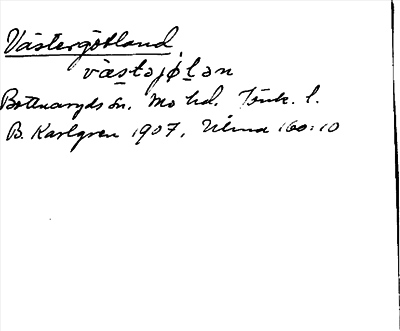 Västergötland
västəjøl̲ən
Bottnaryds sn. Mo hd. Jönk. l.
B. Karlgren 1907, Ulma 160:10